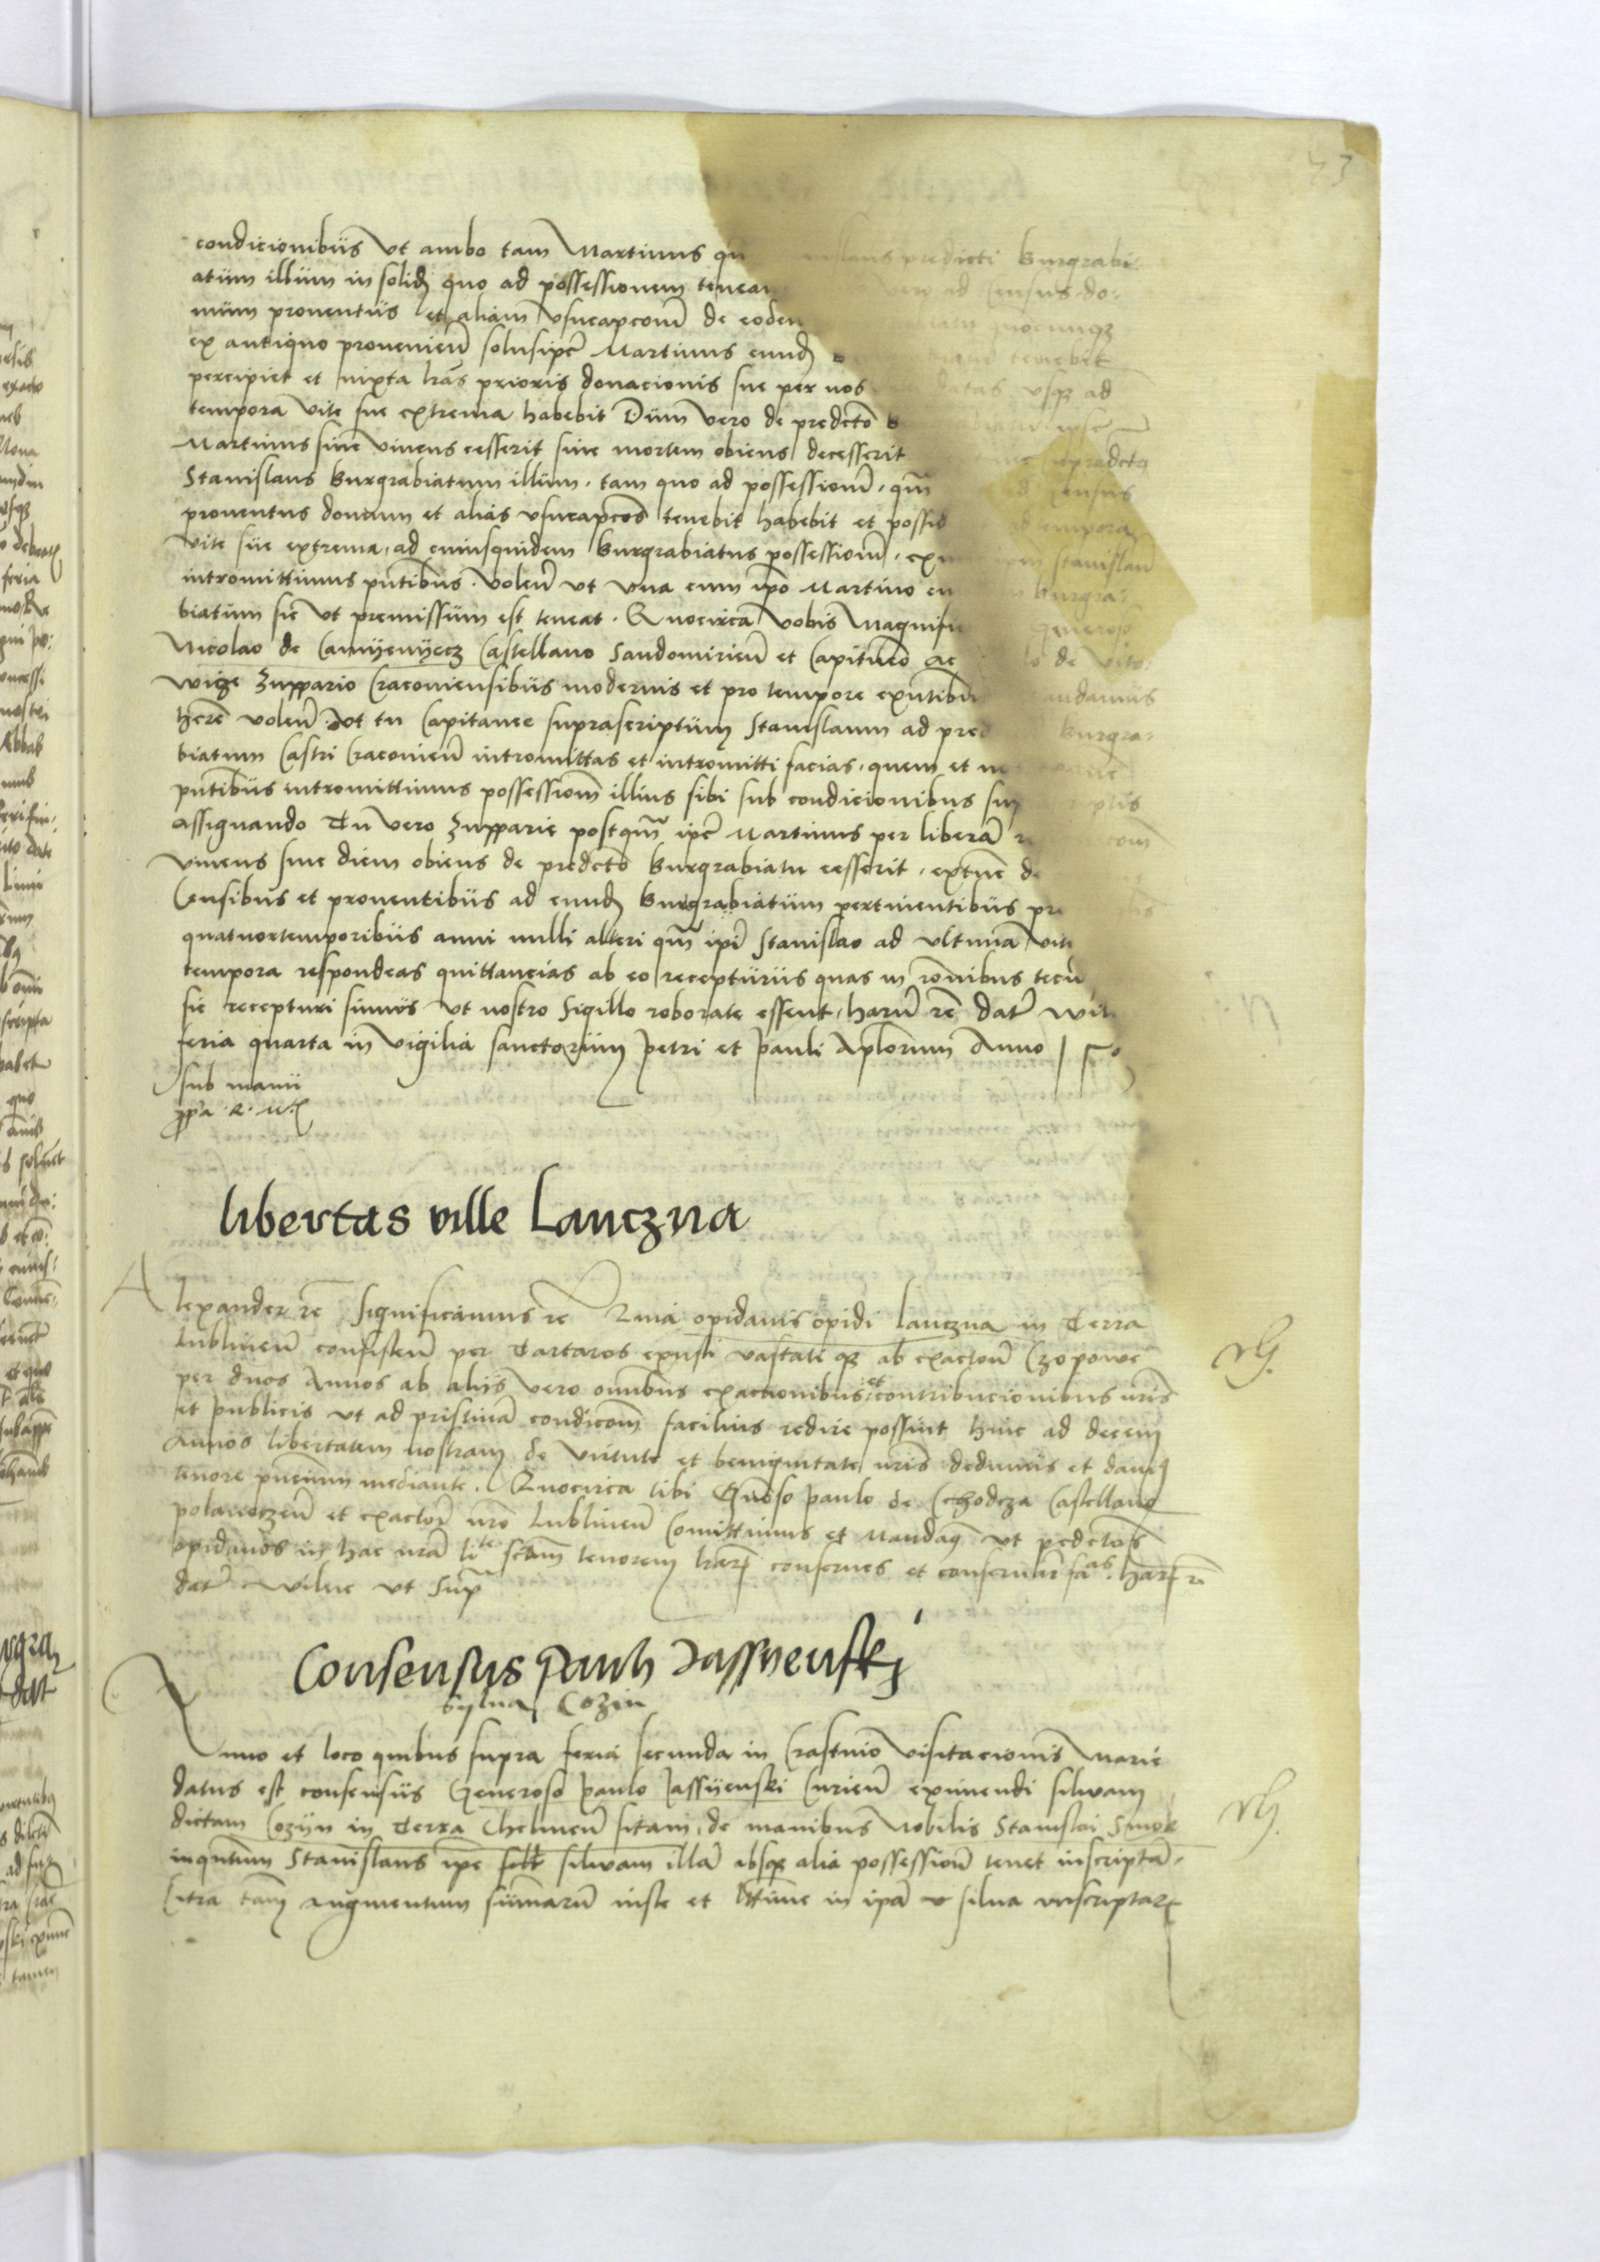 condicionibus ut ambo tam Martinus qu predicti burgrabi
atum illum in solidum quo ad possessionem tenean vero ad census do:
num proventus et aliam usucapcōm de eodem
ex antiquo provenien̄ solus ip̄e Martinus eund tenebit
percipiet et iuxta lr̄as prioris donacionis sue per nos datas usq ad
tempora vite sue extrema habebit Dum vero de predcto b
Martinus sive vivens cesserit sive mortem obiens decesserit
Stanislaus burgrabiatum illum, tam quo ad possessionē, qm̄ census
proventus domum et alias usucapcōes tenebit habebit et possid tempora
vite sue extrema, ad cuiusquidem burgrabiatus possessionē, Stanislau
intromittimus pn̄tibus. Volen̄ ut una cum ip̄o Martino burgra:
biatum sic ut premissum est teneat. Quocirca vobis Magnifi generoso
Nicolao de Camyenyecz Castellano Sandomirien̄ et Capitaneo ac de Vito:
wize Zuppario Cracoviensibus modernis et pro tempore existn̄tibus mandamus
hr̄e volen̄. ut tu Capitanee suprascriptum Stanislaum ad pred burgra:
biatum Castri Cracovien̄ intromittas et intromitti facias, quem et
pn̄tibus intromittimus possessionē illius sibi sub condicionibus sup
assignando Tu vero Zupparie postqm̄ ip̄e Martinus per liberā
vivens sive diem obiens de predcto burgrabiatu cesserit, extunc de
Censibus et proventibus ad eund burgrabiatum pertinentibus pr
quatuortemporibus anni nulli alteri qm̄ ip̄i Stanislao ad ultima vite
tempora respondeas quittancias ab eo recepturus quas in rōnibus tecū
sic recepturi sumus ut nostro Sigillo roborate essent, harū rē Datū Wil
feria quarta in vigilia sanctorum Petri et Pauli Aplorum Anno
sub manu
ppa R. M.
libertas ville Lanczna
Alexander rē Significamus rē Quia opidanis opidi Lanczna in Terra
Lublinen̄ consisten̄ per Tartaros exusti vastati q ab exactōn̄ Czopowe
per duos Annos ab aliis vero omnibus exactionibus et contribucionibus nr̄is
et publicis ut ad pristinā condicōm facilius redire possint hinc ad decem
Annos libertatem nostram de virtute et benignitate nr̄is dedimus et dam
tenore pn̄cium mediante. Quocirca tibi Gn̄oso Paulo de Chodcza Castellano
polanoczen̄ et exactori nr̄o Lublinen̄ Comittimus et Mandam ut predctos
opidanos in hac nrā lite scdm tenorem harū conserves et conservari fa as. harū rē
datū Wilne ut Sup
Consensus Pauli Jassyenski
Sylva Cozin
Anno et loco quibus supra feria secunda in Crastino visitacionis Marie
datus est consensus Generoso Paulo Jassyenski Curien̄ eximendi silwam
dictam Cozyn in Terra Chelmen̄ sitam, de manibus Nobilis Stanislai Smok
inqntum Stanislaus ip̄e silwam illā absq alia possessionē tenet inscriptā,
Citra tam augmentum sum̄arū iuste et lttime in ip̄a silva inscriptar